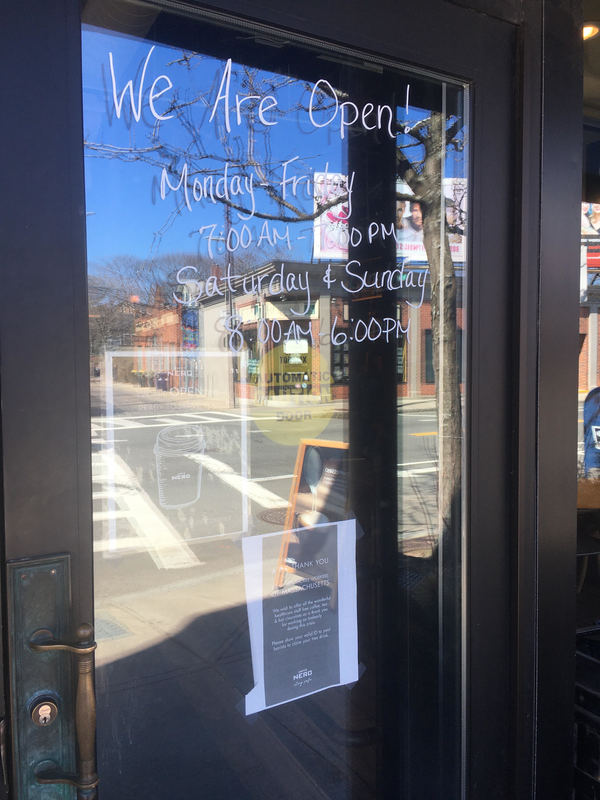 We Are Open!
Monday-Friday
7:00 AM - 7:00 PM
Saturday & Sunday
8:00 AM - 6:00 PM
NERO
OPEN
AUTOMATIC
DOOR
NERO
THANK YOU
OF MASSACHUSETTS
We wish to offer all the wonderful
healthcare staff free coffee, tea
& hot chocolate as a thank you
for working so tirelessly
during this crisis.
Please show your valid ID to your
barista to claim your free drink.
NERO